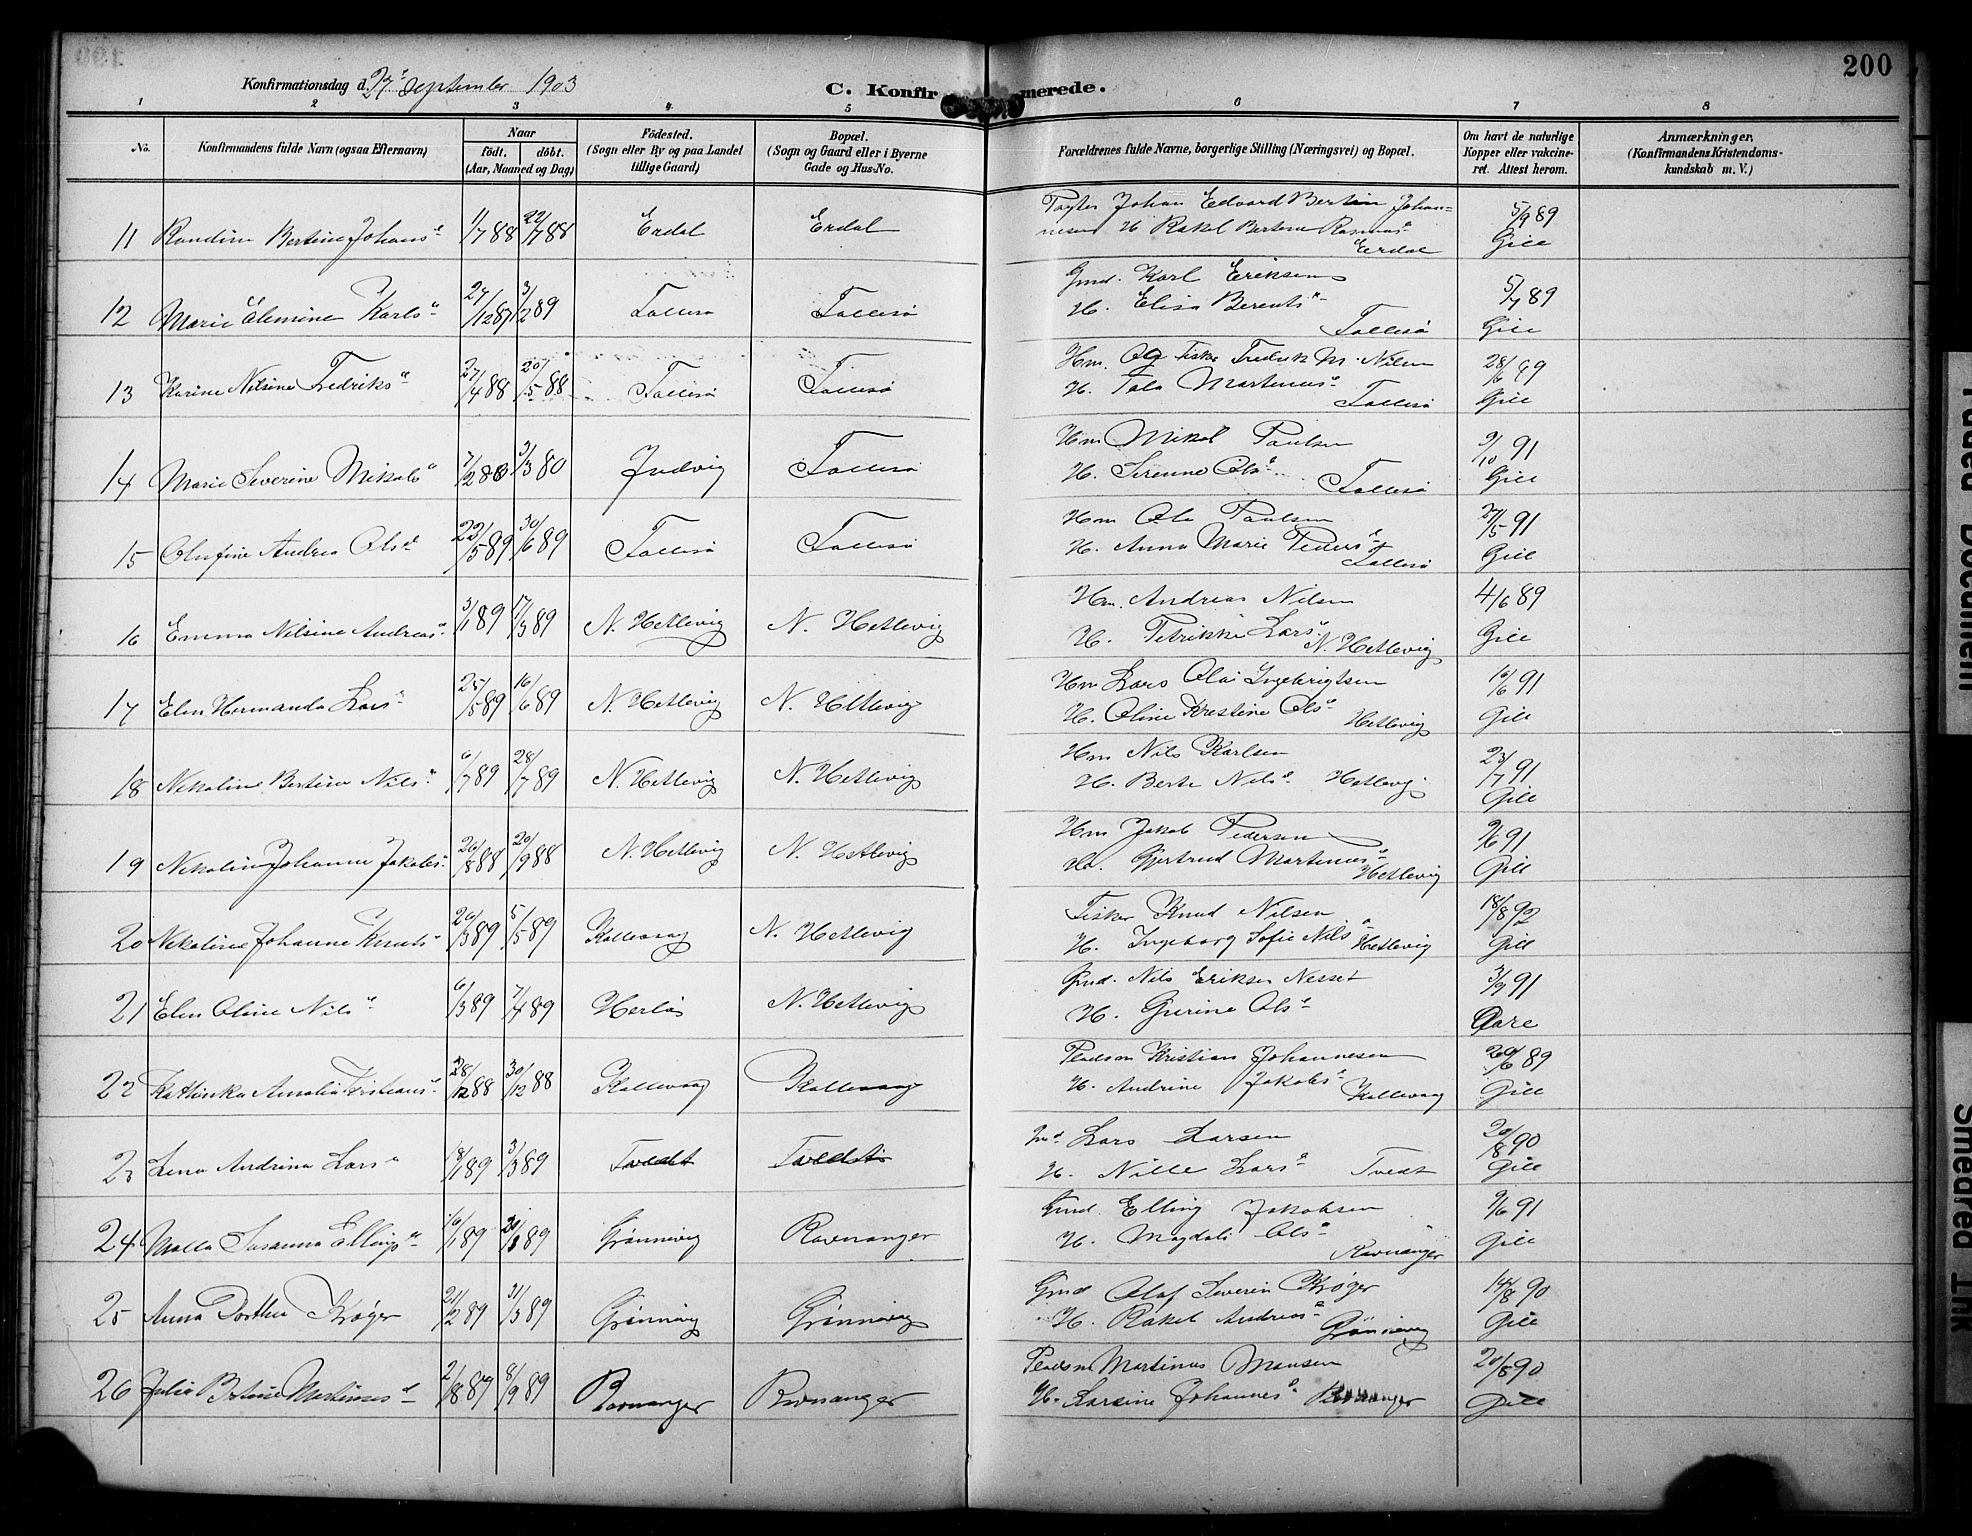 200
Konfirmationsdag d. 27de September 1903
C. Konfirmerede.
1 2 3 4 5 6 7 8
No.
Konfirmandens fulde Navn (ogsaa Efternavn)
Naar
födt. döbt.
(Aar, Maaned og Dag)
Födested.
(Sogn eller By og paa Landet
tillige Gaard)
Bopæl.
(Sogn og Gaard eller i Byerne
Gade og Hus-No.
Forældrenes fulde Navne, borgerlige Stilling (Næringsvei) og Bopæl.
Om havt de naturlige
Kopper eller vakcine-
ret. Attest herom.
Anmærkninger.
(Konfirmandens Kristendoms-
kundskab m. V.)
11 Randine Bertine Johansd 1/7 88 22/7 88 Erdal Erdal Johan Edvard Bertin Johan-
nesen H. Rakel Bertine Rasmusd Erdal 5/9 89 Gill
12 Marie Elemine Karlsd 27/12 87 3/2 89 Tollesö Tollesö Gmd. Karl Eriksen
H. Elisa Berentsd Tollesö 5/7 89 Gill
13 Karine Nilsine Fedriksd 27/4 88 20/5 88 Tollesö Tollesö Hm. og Fisker Fredrik M. Nilsen
H. Tala Martinusd Tollesö 28/6 89 Gill
14 Marie Severine Mikalsd 7/2 80 3/3 80 Indvig Tollesö Hm Mikal Paulsen
H. Serine Olsd Tollesö 9/10 91 Gill
15 Olufine Andrea Olsd 22/5 89 30/6 89 Tollesö Tollesö Hm Ole Paulsen
H. Anna Marie Pedersd Tollesö 27/5 91 Gill
16 Emma Nilsine Andreasd 3/1 89 17/3 89 N. Hetlevig N. Hetlevig Hm. Andreas Nilsen
H. Petrikke Larsd N. Hetlevig 4/6 89 Gill
17 Elen Hermanda Larsd 25/5 89 16/6 89 N. Hetlevig N. Hetlevig Hm Lars Olai Ingebrigtsen
H. Oline Krestine Olsd Hetlevig 10/6 91 Gill
18 Nikoline Bertine Nilsd 6/7 89 28/7 89 N. Hetlevig N. Hetlevig Hm Nils Karlsen
H. Berte Nilsd Hetlevig 23/7 91 Gill
19 Nikoline Johanne Jakobsd 26/8 88 20/9 88 N. Hetlevig N. Hetlevig Hm Jakob Pedersen
H. Gjertrud Martinusd Hetlevig 9/6 91 Gill
20 Nikoline Johanne Knutsd 20/3 89 5/5 89 Kollevaag N. Hetlevig Fisker Knud Nilsen
H. Ingeborg Sofie Nilsd Hetlevig 18/8 92 Gill
21 Elen Oline Nilsd 6/3 89 7/4 89 Herlö N. Hetlevig Gmd. Nils Eriksen Nesset
H. Gurine Olsd 3/9 91 Aare
22 Kathinka Amalia Kristiansd 28/12 88 30/12 88 Kollevaag Kollevaag Pladsm Kristian Johannesen
H. Andrine Jakobsd Kollevaag 20/6 89 Gill
23 Lena Andrina Larsd 18/1 89 3/3 89 Tvedt Tvedt Lars Larsen
H. Nille Larsd Tvedt 20/8 90 Gill
24 Malla Susanna Ellingsd 16/1 89 89 Grönnevig Ravnanger Gmd. Elling Jakobsen
H. Magdali Olsd Ravnanger 9/6 91 Gill
25 Anna Dorthea Krøger 21/2 89 31/3 89 Grönnevig Grönnevig Gmd Olaf Severin Krøger
H. Rakel Andreasd Grönnevig 14/8 90 Gill
26 Julie Bertine Martinusd 2/8 89 8/9 89 Ravnanger Ravnanger Pladsm Martinus Monsen
H. Karsine Johannesd Ravnanger 20/8 90 Gill
Faded Document
Smeared Ink